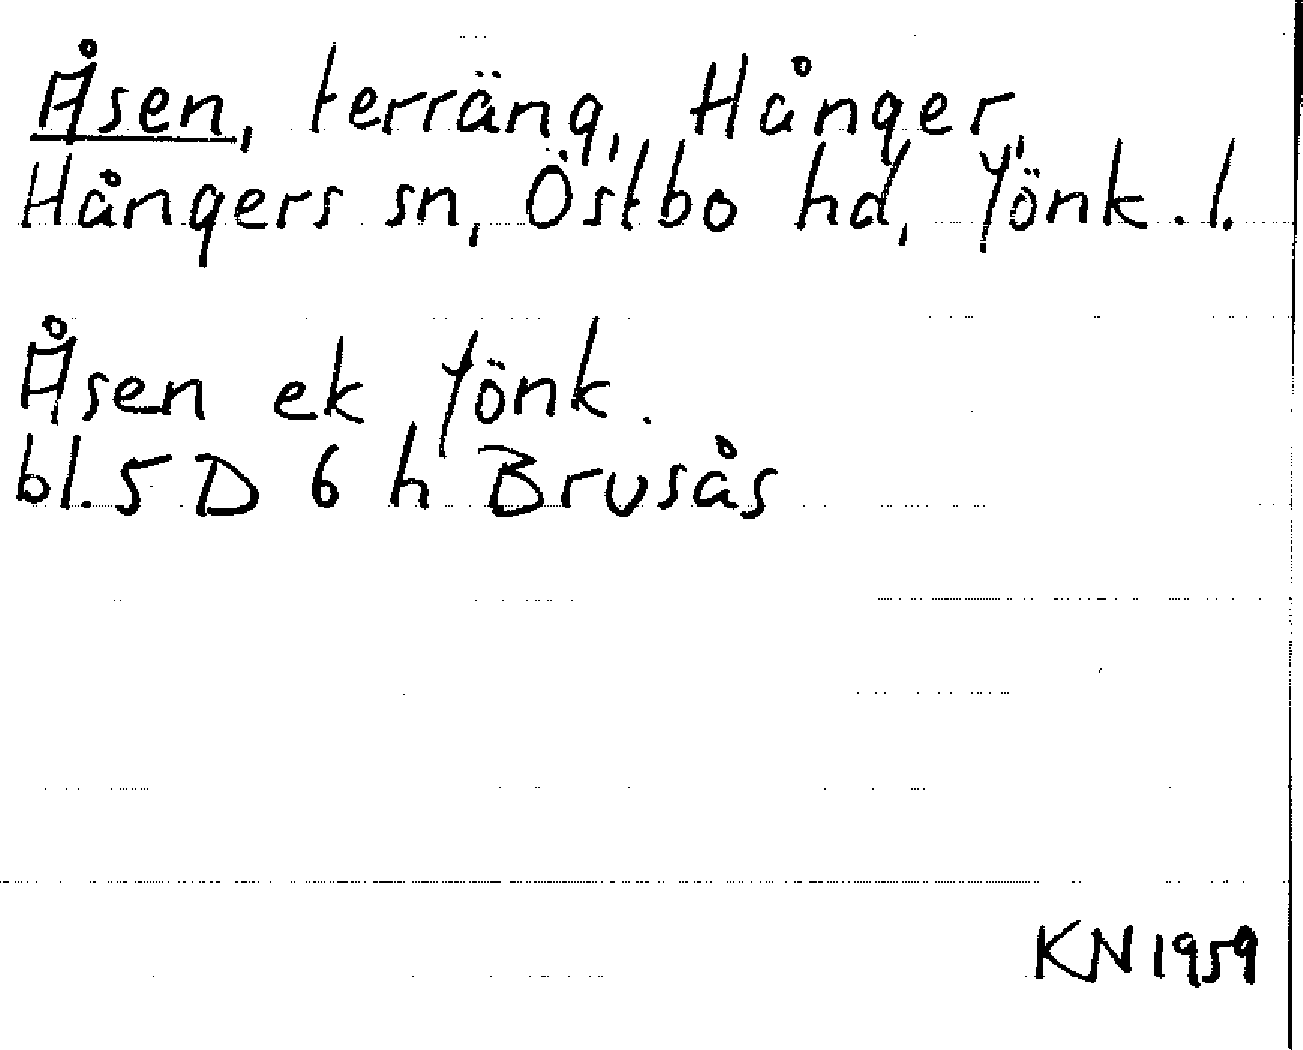 Åsen, terräng, Hånger,
Hångers sn, Östbo hd, Jönk. l.
Åsen ek Jönk.
bl. 5 D 6 h Brusås
KN 1959